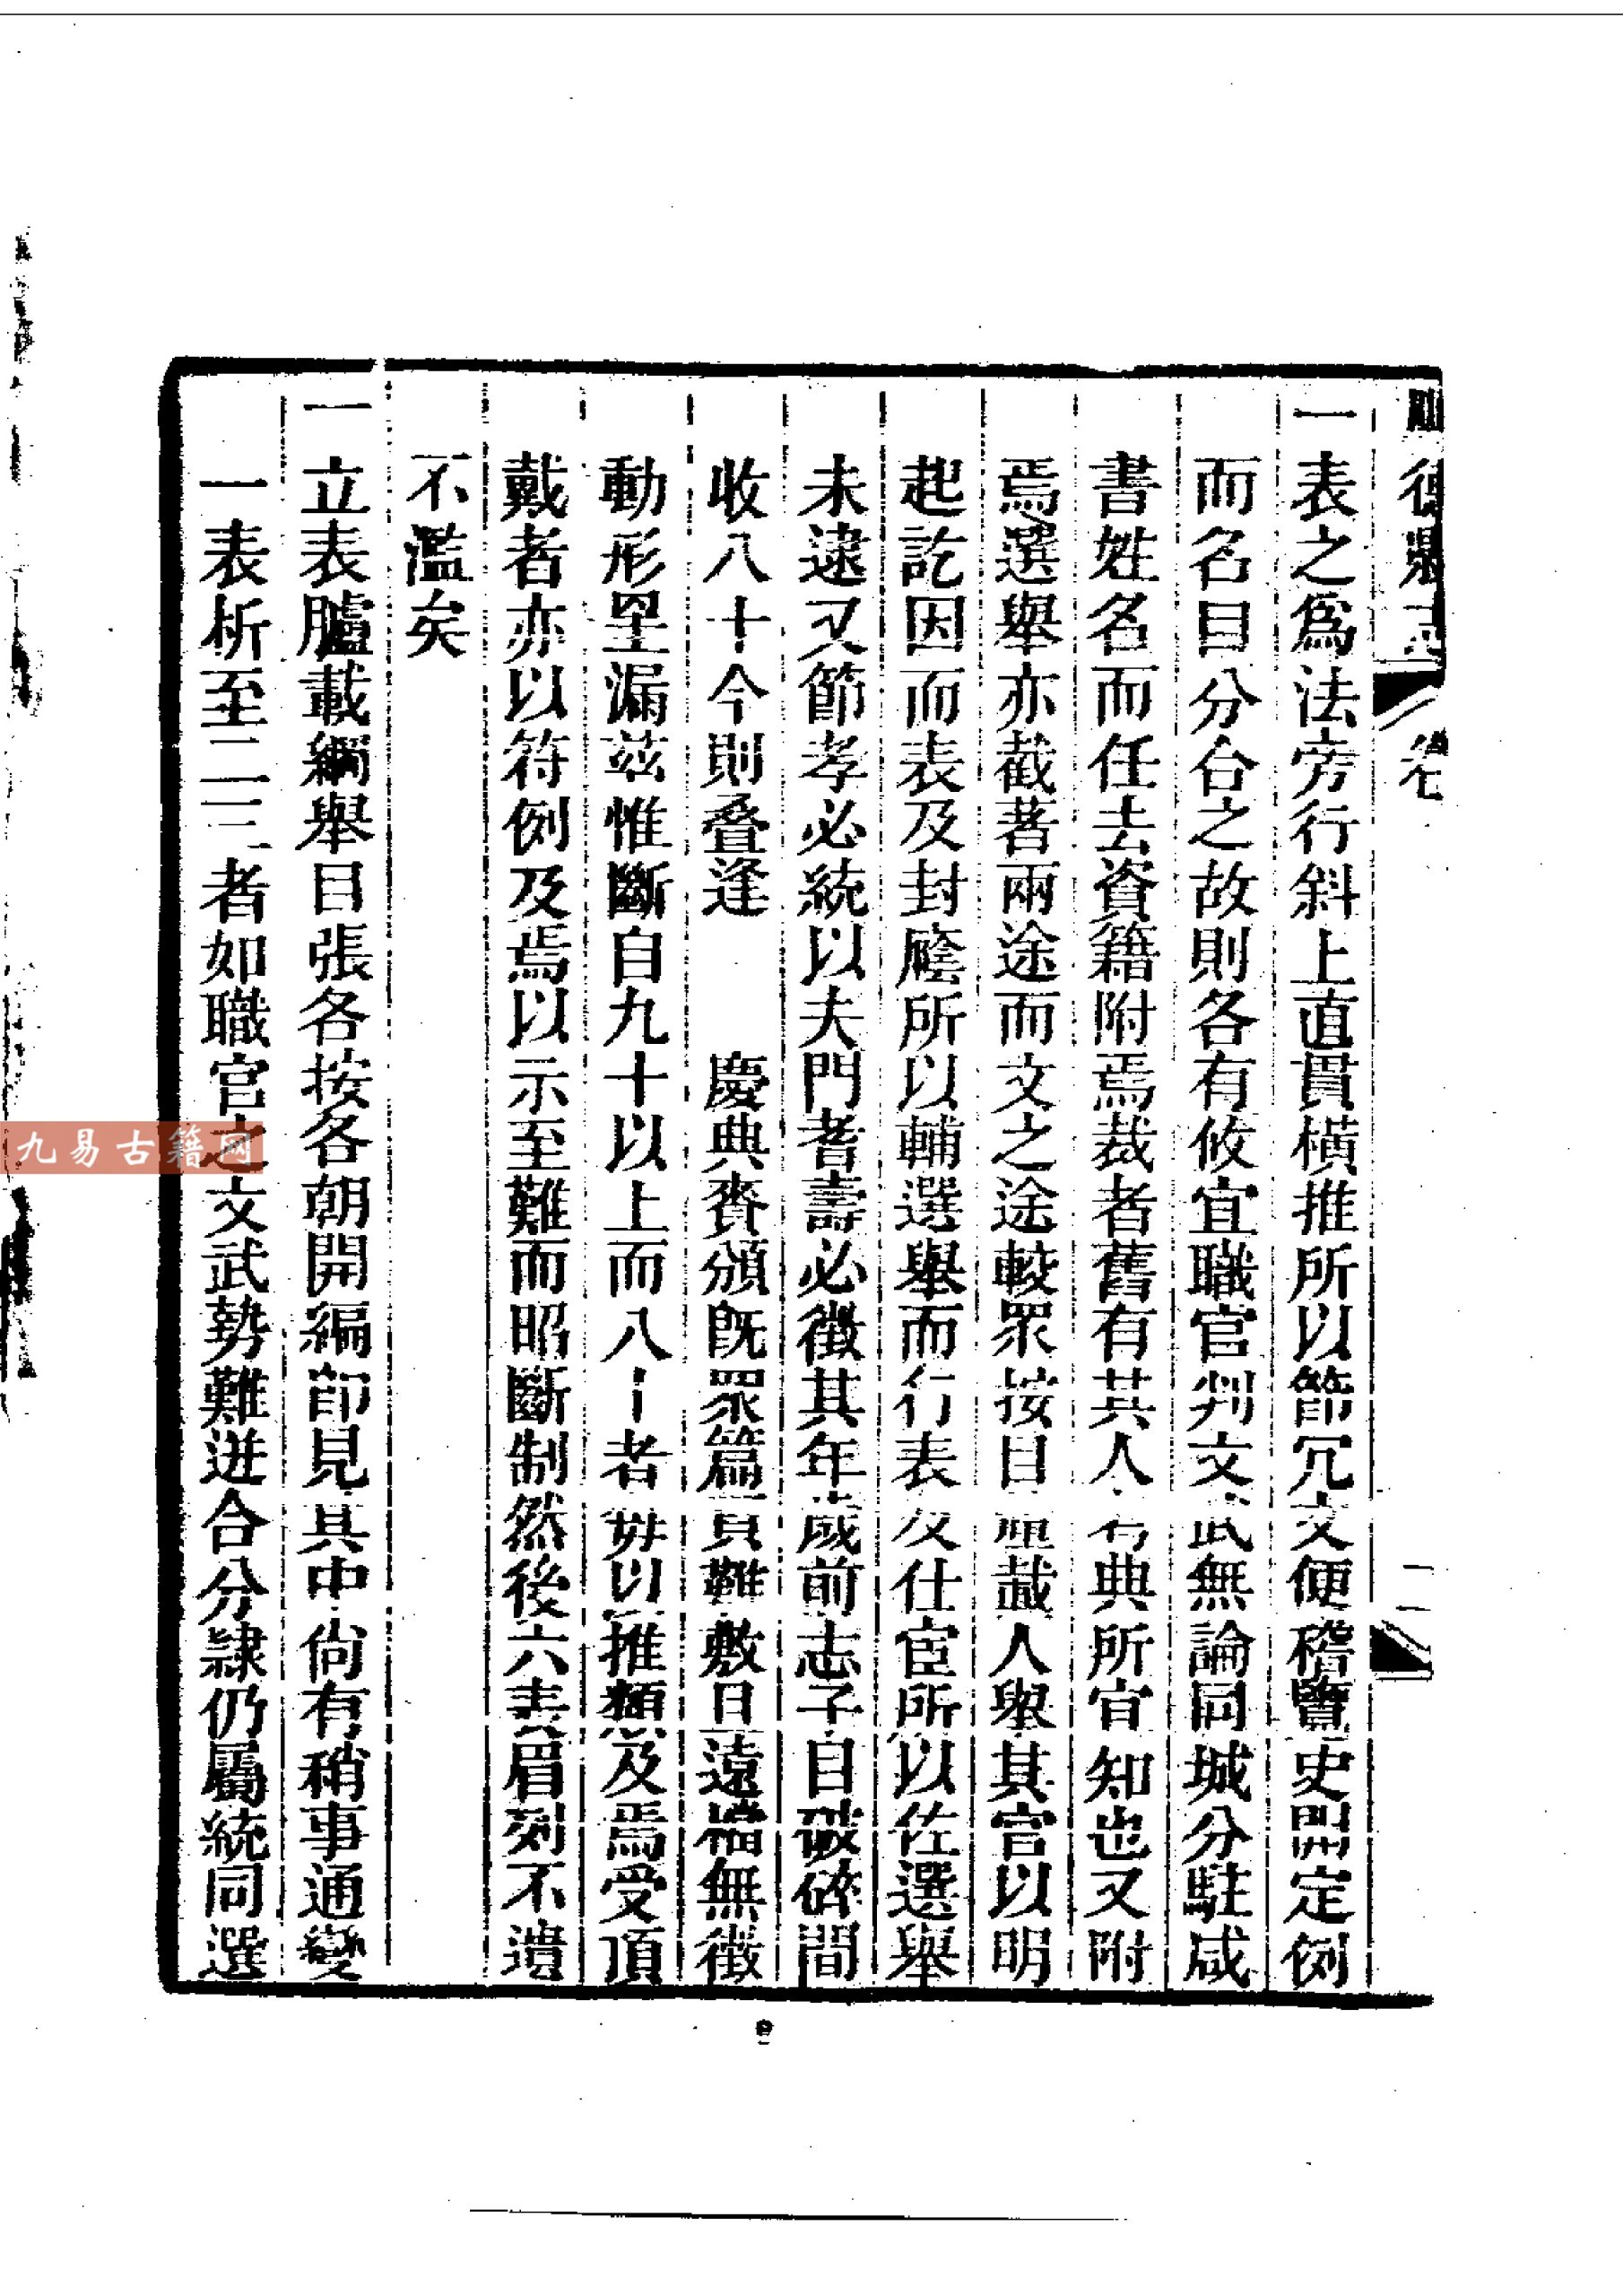 卷
二
一表之爲法旁行斜上直貫橫推所以節冗文便稽覽史開定例
而名目分合之故則各有攸宜職官判文武無論同城分駐咸
書姓名而任去資籍附焉裁者舊有其人名典所宜知也又附
焉選舉亦截著兩途而文之途較眾按目臚載人舉其官以明
起訖因而表及封廕所以輔選舉而行表及仕宦所以佐選舉
未逮又節孝必統以夫門耆壽必徵其年歲前志子自破碎間
收八十今則叠逢 慶典賚頒旣眾篇頁難敷且遠檔無徵
動形罣漏茲惟斷自九十以上而八十者毋以推類及焉受頂
戴者亦以符例及焉以示至難而昭斷制然後六表眉列不遺
不濫矣
一立表臚載綱舉目張各按各朝開編節見其中尙有稍事通變
一表析至二三者如職官之文武勢難迸合分隸仍屬統同選
九易古籍网
9